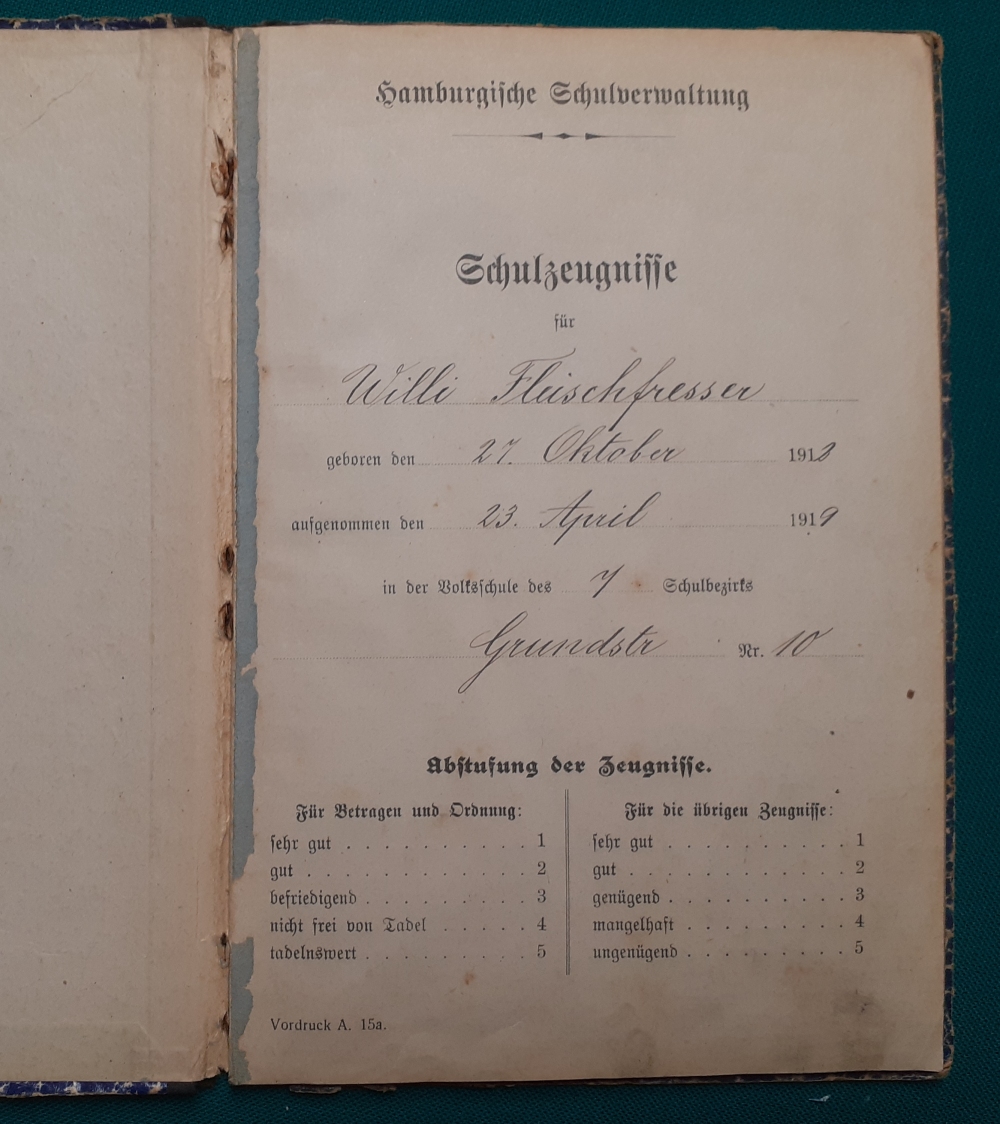 Hamburgische Schulverwaltung
Schulzeugnisse
für
Willi Fleischfresser
geboren den 27. Oktober 1913
aufgenommen den 23. April 1919
in der Volksschule des 7 Schulbezirks
Grundstr Nr. 10
Abstufung der Zeugnisse.
Für Betragen und Ordnung:
sehr gut . . . . . . . . . . 1
gut . . . . . . . . . . . . 2
befriedigend . . . . . . . . . 3
nicht frei von Tadel . . . . . 4
tadelnswert . . . . . . . . . 5
Für die übrigen Zeugnisse:
sehr gut . . . . . . . . . . 1
gut . . . . . . . . . . . . 2
genügend . . . . . . . . . . 3
mangelhaft . . . . . . . . . 4
ungenügend . . . . . . . . . 5
Vordruck A. 15a.